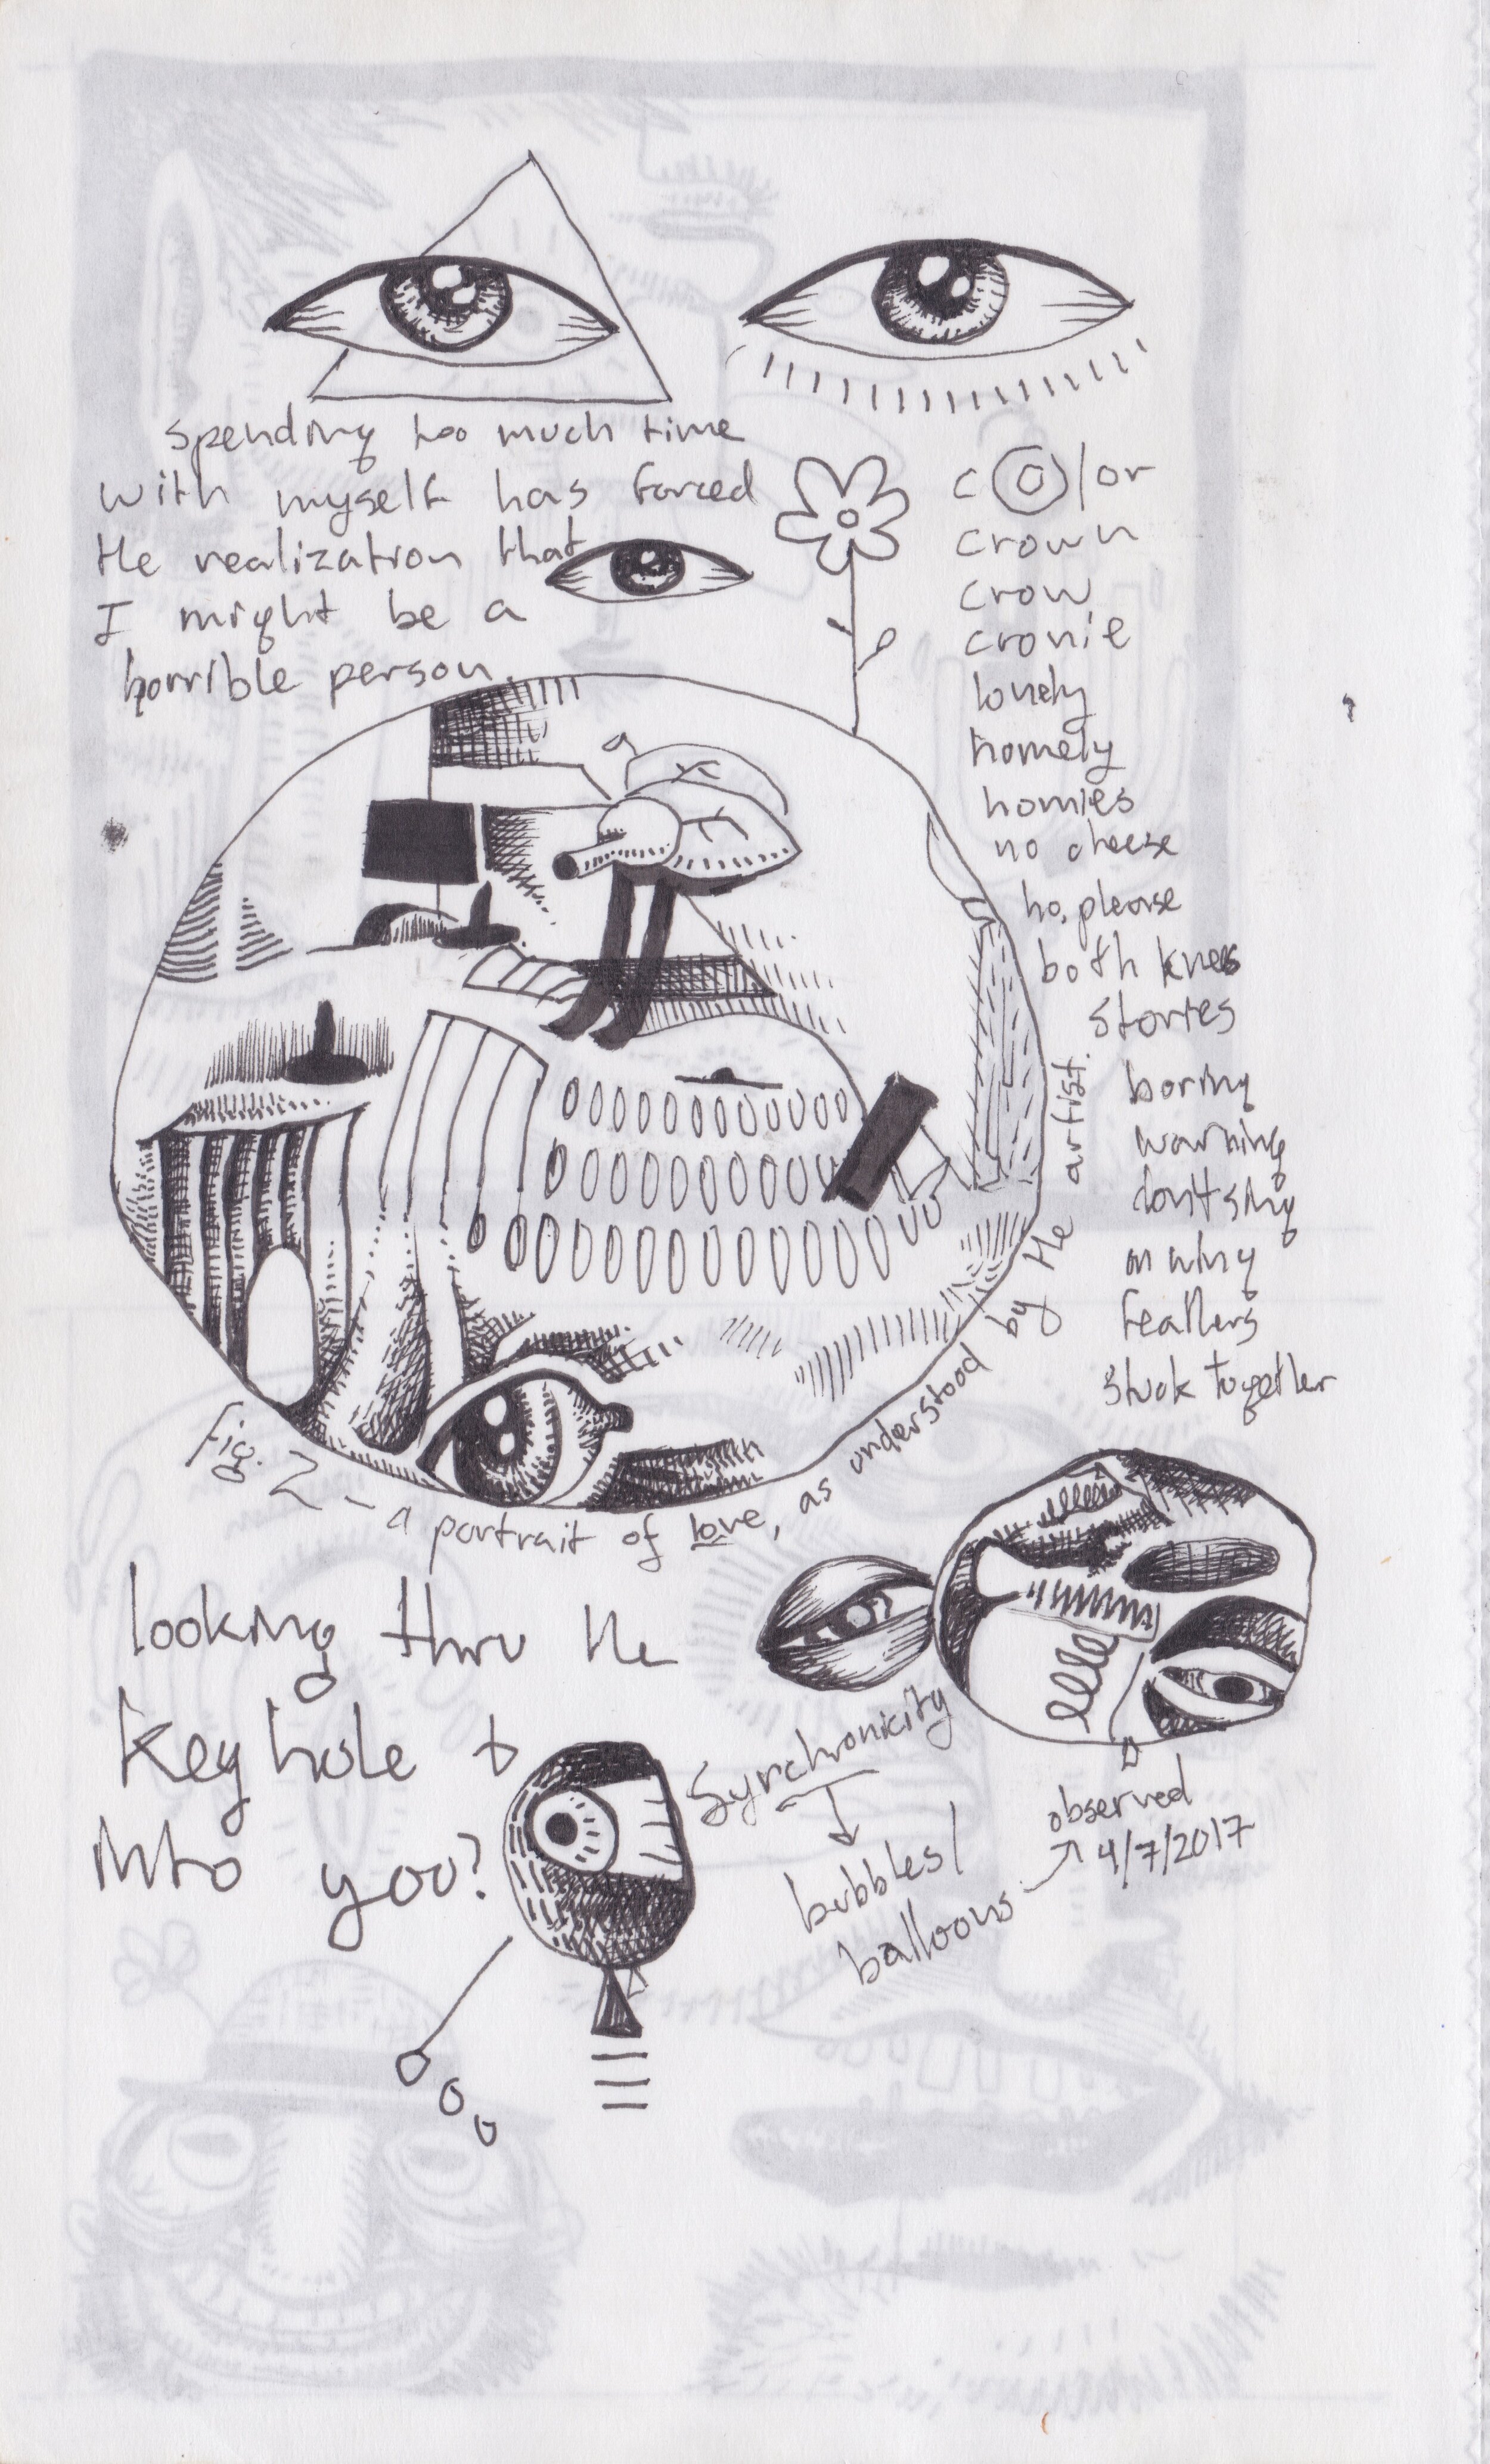 spending too much time
with myself has forced
the realization that
I might be a
horrible person.
color
crown
crow
cronie
lonely
homely
homies
no cheese
ho, please
both knees
stories
boring
warning
don't sing
on wing
feathers
stuck together
Fig. 2 - a portrait of love, as understood by the artist.
looking thru the
keyhole
into you?
Synchronicity
bubbles/
balloons
observed
4/7/2017